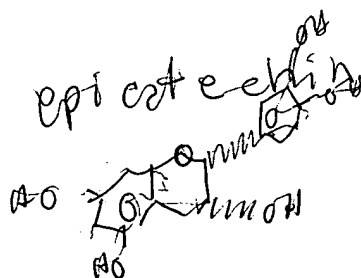 epicatechin
OH
OH
O
HO
OH
HO